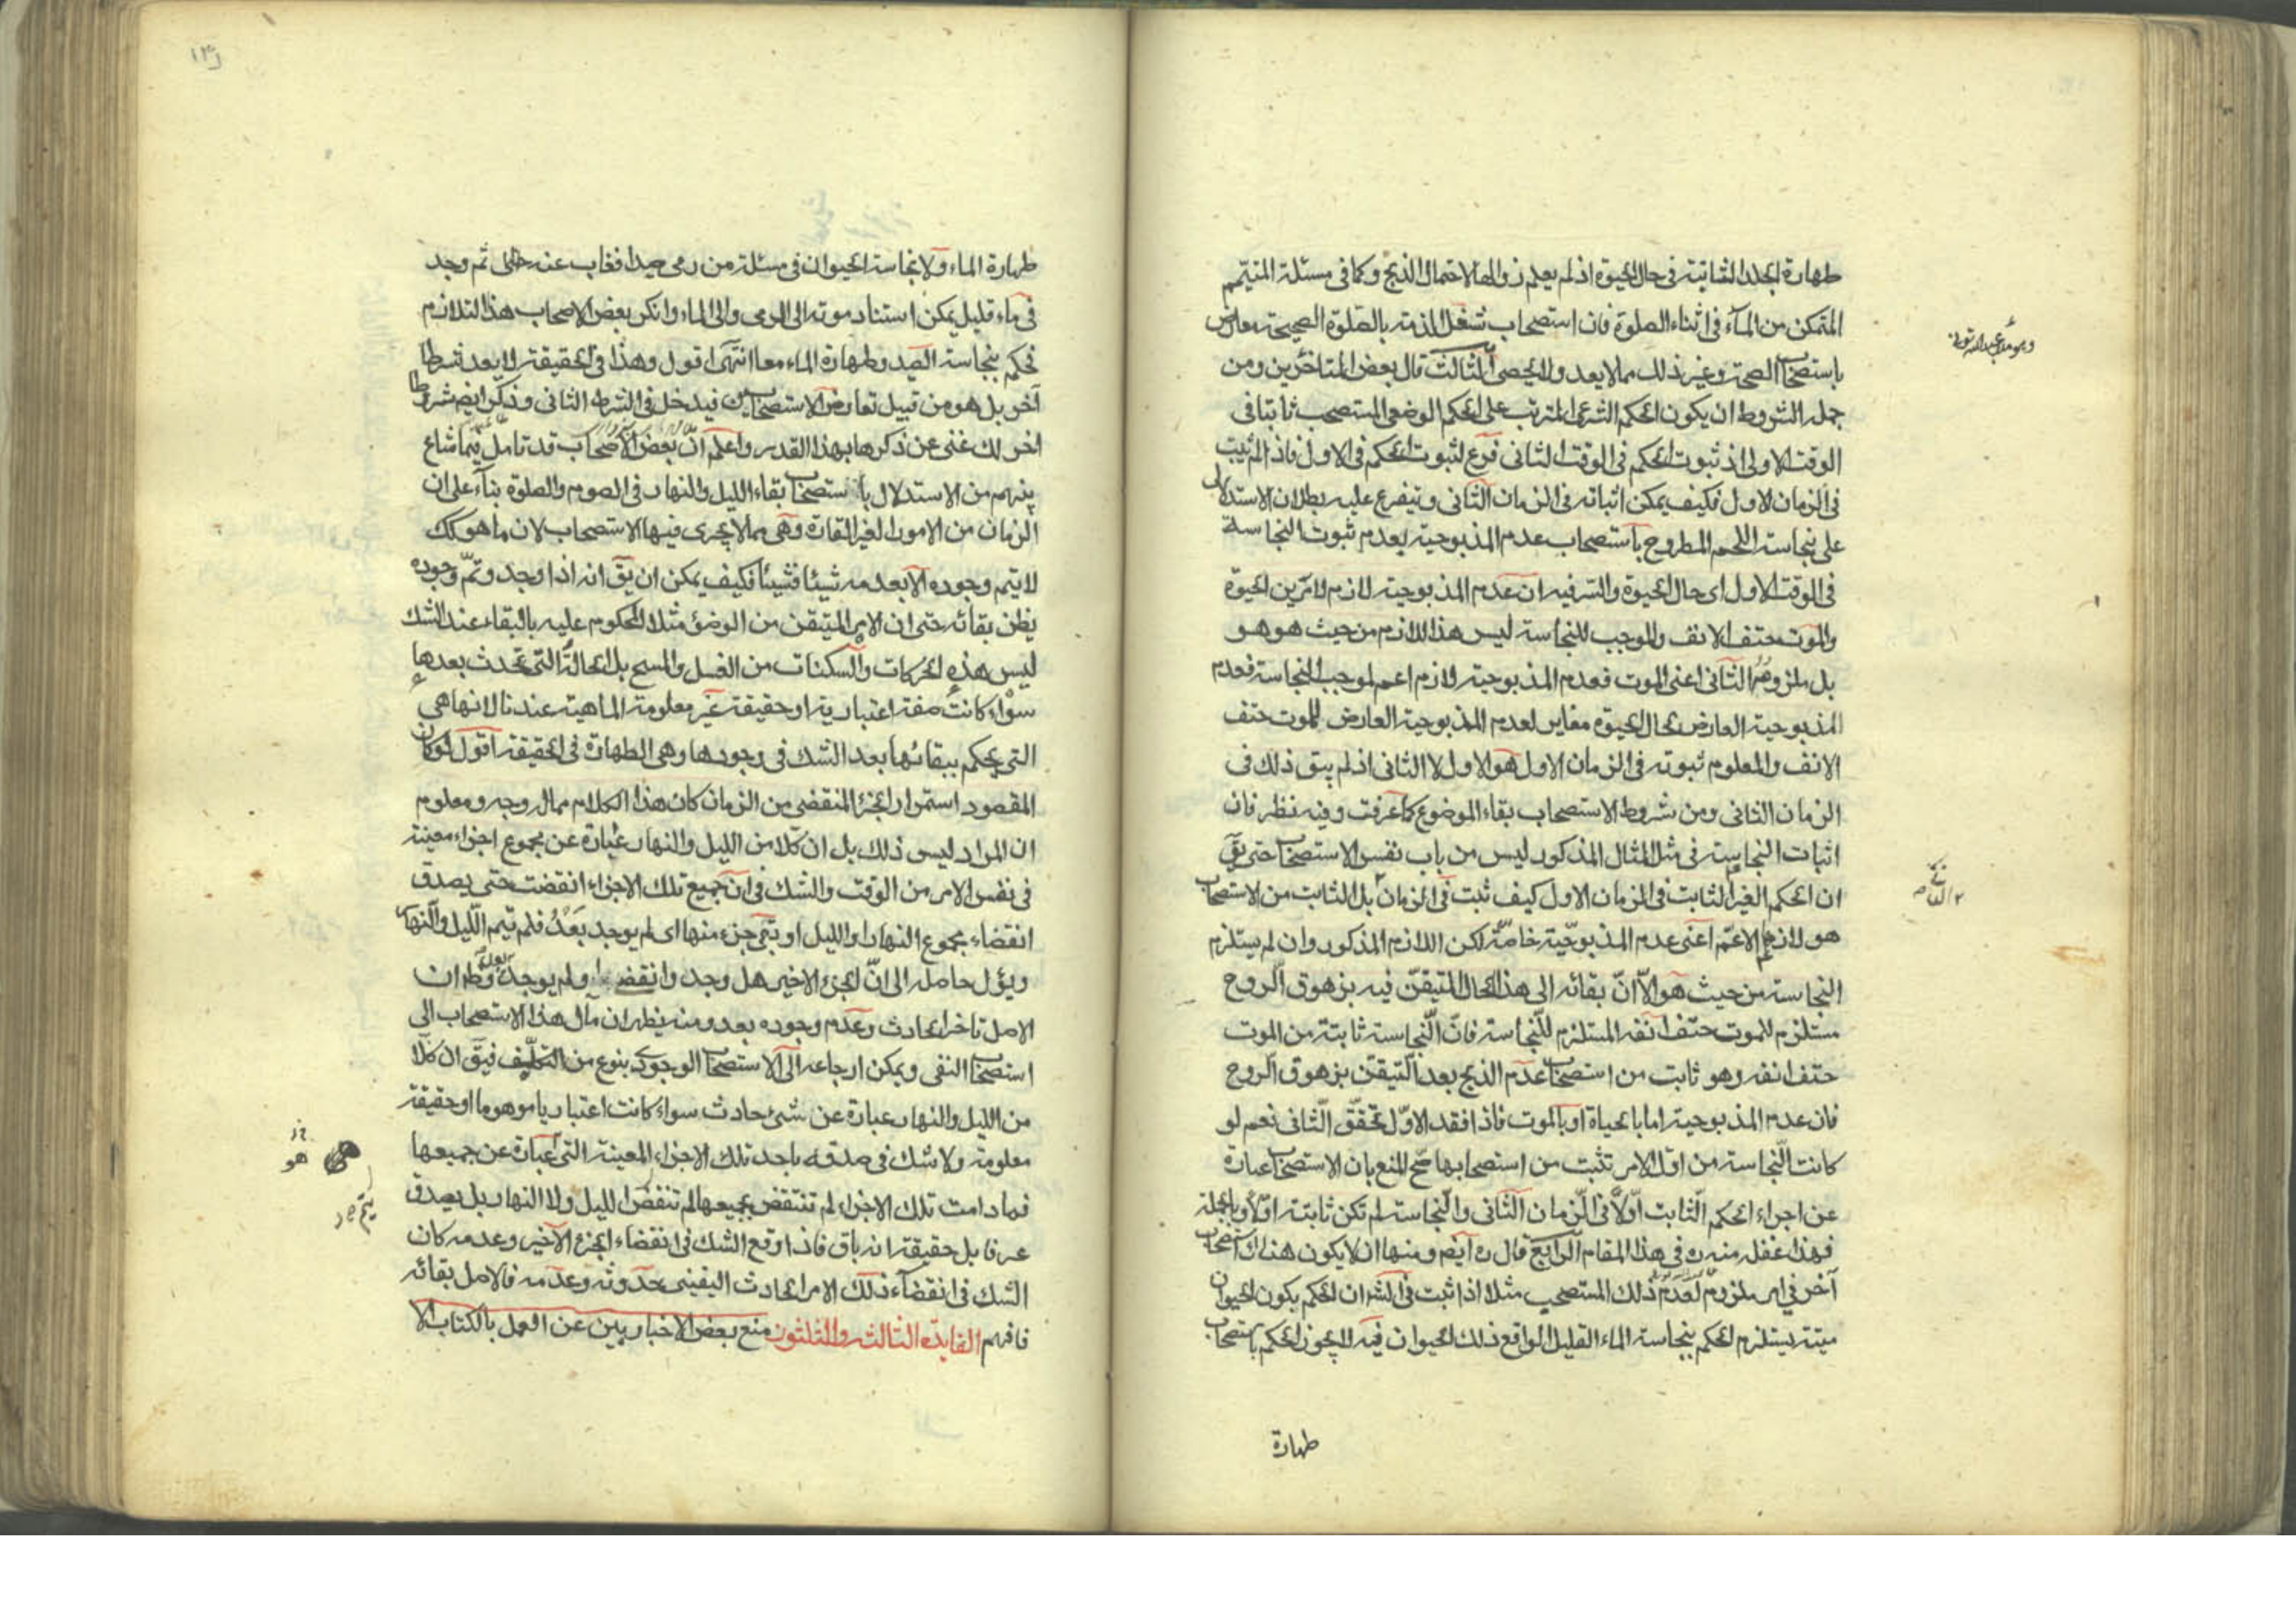 طهارة الجلد الثابتة فى حال الحيوة اذ لم يعلم زوالها لاحتمال الذبح وكما فى مسئلة المتيمم
المتمكن من المآء فى اثناء الصلوة فان استصحاب شغل الذمة بالصلوة الصحيحة معارض
باستصحاب الصحة وغير ذلك مما لا يعد ولا يحصى الثالث قال بعض المتاخرين ومن
جملة الشروط ان يكون الحكم الشرعى المترتب على الحكم الوضعى المستصحب ثابتا فى
الوقت الاولى اذ ثبوت الحكم فى الوقت الثانى فرع لثبوت الحكم فى الاول فاذا لم يثبت
فى الزمان الاول فكيف يمكن اثباته فى الزمان الثانى ويتفرع عليه بطلان الاستدلال
على نجاسة اللحم المطروح باستصحاب عدم المذبوحية بعدم ثبوت النجاسة
فى الوقت الاول اى حال الحيوة والسر فيه ان عدم المذبوحية لازم لامرين الحيوة
والموت حتف الانف والموجب للنجاسة ليس هذا اللازم من حيث هو هو
بل ملزومه الثانى اعنى الموت فعدم المذبوحية لازم اعم لموجب النجاسة فعدم
المذبوحية العارض بحال الحيوة مغاير لعدم المذبوحية العارض للموت حتف
الانف والمعلوم ثبوته فى الزمان الاول هو الاول لا الثانى اذ لم يبق ذلك فى
الزمان الثانى ومن شروط الاستصحاب بقاء الموضوع كما عرفت وفيه نظر فان
اثبات النجاسة فى مثل المثال المذكور ليس من باب نفس الاستصحاب حتى يق
ان الحكم الغير الثابت فى الزمان الاول كيف ثبت فى الزمان بل الثابت من الاستصحاب
هو لازم الاعم اعنى عدم المذبوحية خاصة لكن اللازم المذكور وان لم يستلزم
النجاسة من حيث هو الا ان بقائه الى هذا الحال المتيقن فيه بزهوق الروح
مستلزم للموت حتف انفه المستلزم للنجاسة فان النجاسة ثابتة من الموت
حتف انفه وهو ثابت من استصحاب عدم الذبح بعد التيقن بزهوق الروح
فان عدم المذبوحية اما بالحياة او بالموت فاذا فقد الاول تحقق الثانى نعم لو
كانت النجاسة من اول الامر تثبت من استصحابها صح المنع بان الاستصحاب عبارة
عن اجراء الحكم الثابت اولا فى الزمان الثانى والنجاسة لم تكن ثابتة اولا وبالجملة
فهذا غفلة منه ره فى هذا المقام الرابع قال ره ايضم ومنها ان لا يكون هناك استصحاب
آخر فى امر ملزوم لعدم ذلك المستصحب مثلا اذا ثبت فى الشر ان الحكم بكون الحيوان
ميتة يستلزم الحكم بنجاسة الماء القليل الواقع ذلك الحيوان فيه لا يجوز الحكم باستصحاب
طهارة
طهارة الماء ولا نجاسة الحيوان فى مسئلة من رمى صيدا فغاب عنه ثم وجد
فى ماء قليل يمكن استناد موته الى الرمى والى الماء وانكر بعض الاصحاب هذا التلازم
فحكم بنجاسة الصيد وطهارة الماء معا انتهى اقول وهذا فى الحقيقة لا يعد شرطا
آخر بل هو من قبيل تعارض الاستصحابين فيدخل فى الشرط الثانى وذكر ايضم شروطا
اخر لك غنى عن ذكرها بهذا القدر واعلم ان بعض الاصحاب قد تامل فيما شاع
بينهم من الاستدلال باستصحاب بقاء الليل والنهار فى الصوم والصلوة بنآء على ان
الزمان من الامور الغير القارة وهى مما لا يجرى فيها الاستصحاب لان ما هو كك
لا يتم وجوده الا بعدمه شيئا فشيئا فكيف يمكن ان يق انه اذا وجد وتم وجوده
يظن بقائه حتى ان الامر المتيقن من الوضوء مثلا المحكوم عليه بالبقاء عند الشك
ليس هذه الحركات والسكنات من الغسل والمسح بل الحالة التى تحدث بعدها
سواء كانت صفة اعتبارية او حقيقة غير معلومة الماهية عندنا لانها هى
التى يحكم ببقائها بعد الشك فى وجودها وهى الطهارة فى الحقيقة اقول لو كان
المقصود استمرار الجزء المنقضى من الزمان كان هذا الكلام مما له وجه ومعلوم
ان المراد ليس ذلك بل ان كلا من الليل والنهار عبارة عن مجموع اجزاء معينة
فى نفس الامر من الوقت والشك فى ان جميع تلك الاجزاء انقضت حتى يصدق
انقضاء مجموع النهار او الليل او بقى جزء منها اى لم يوجد بعد فلم يتم الليل والنهار
ويؤل حاصله الى ان الجزء الاخير هل وجد وانقضى او لم يوجد بعد وظ ان
الاصل تاخر الحادث وعدم وجوده بعد ومنه يظهر ان مآل هذا الاستصحاب الى
استصحاب النفى ويمكن ارجاعه الى الاستصحاب الوجودى بنوع من التكلف فيق ان كلا
من الليل والنهار عبارة عن شىء حادث سواء كانت اعتباريا موهوما او حقيقة
معلومة ولا شك فى صدقه باحد تلك الاجزاء المعينة التى عبارة عن جميعها
فما دامت تلك الاجزاء لم تنتقض بجميعها لم تنقض الليل ولا النهار بل يصدق
عرفا بل حقيقة انه باق فاذا وقع الشك فى انقضاء الجزء الآخير وعدمه كان
الشك فى انقضآء ذلك الامر الحادث اليقينى حدوثه وعدمه فالاصل بقائه
فافهم الفايدة الثالثه والثلثون منع بعض الاخباريين عن العمل بالكتاب الا
هو